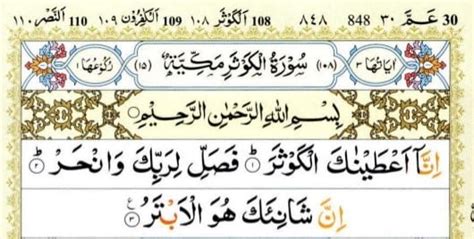 30 عَمَّ ٣٠ 848 ٨٤٨ 108 اَلْكَوْثَر ١٠٨ 109 اَلْكٰفِرُوْن ١٠٩ 110 اَلنَّصْر ١١٠
اٰيَاتُهَا ٣ (١٠٨) سُوْرَةُ الْكَوْثَرِ مَكِّيَّةٌ (١٥) رُكُوْعُهَا ١
بِسْمِ اللّٰهِ الرَّحْمٰنِ الرَّحِيْمِ
اِنَّاۤ اَعْطَيْنٰكَ الْكَوْثَرَ ۝١ فَصَلِّ لِرَبِّكَ وَانْحَرْ ۝٢
اِنَّ شَانِئَكَ هُوَ الْاَبْتَرُ ۝٣